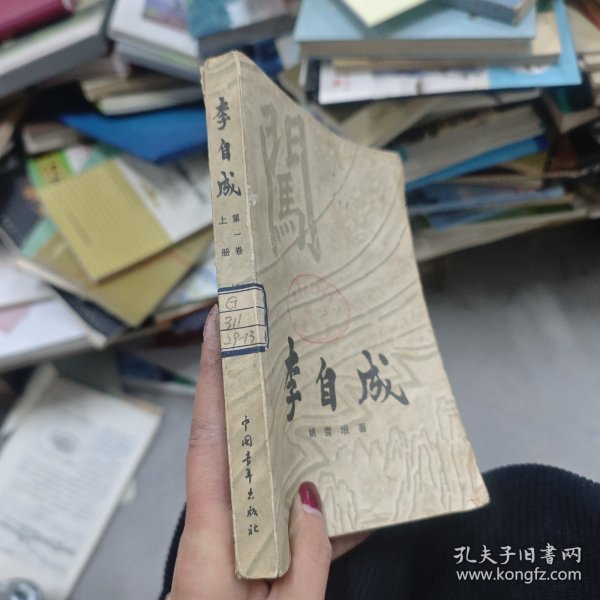 李自成
第一卷
上册
G
311
29-13
中国青年出版社
闯
李自成
姚雪垠著
孔夫子旧书网
www.kongfz.com